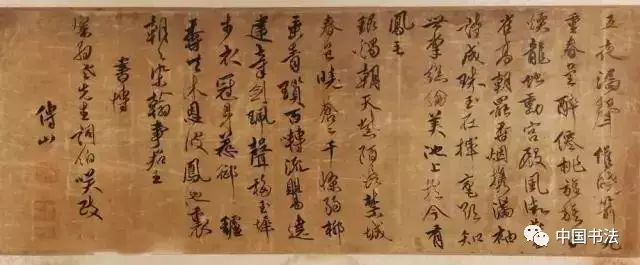 五夜漏聲催曉箭九
重春色醉僊桃旌旂日
煖龍蛇動宮殿風微燕
雀高朝罷香烟携滿袖
詩成珠玉在揮毫欲知
世掌絲綸美池上於今有
鳳毛
銀燭朝天紫陌長禁城
春色曉蒼〻千條弱柳
垂青瑣百囀流鶯遶
建章劍珮聲隨玉墀
步衣冠身惹御鑪
香共沐恩波鳳池裏
朝〻染翰事君王
書博
翁老先生詞伯笑政
傅山
中国书法